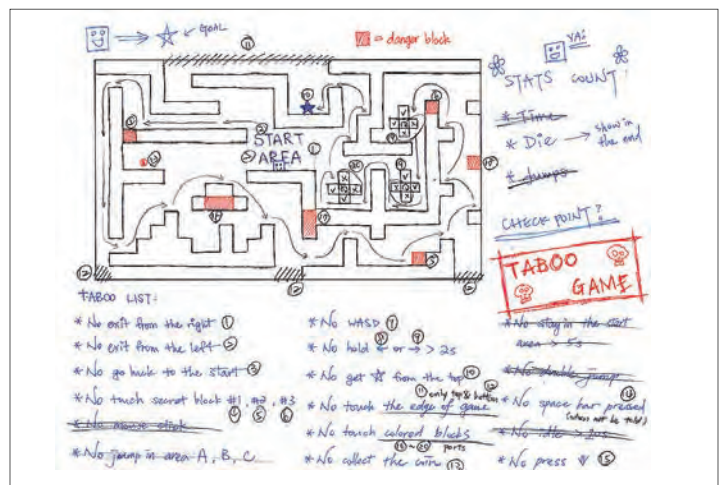 GOAL
= danger block
YA!
STATS COUNT
* Time
* Die → show in the end
* Jumps
START
AREA
CHECK POINT?
TABOO
GAME
TABOO LIST:
* No exit from the right ①
* No exit from the left ②
* No go back to the start ③
* No touch secret block #1, #2, #3
④ ⑤ ⑥
* No mouse click
* No jump in area A, B, C
* No WASD ⑦
⑧ ⑨
* No hold ← or → > 2s
* No get ☆ from the top ⑩
⑪ only top & bottom ⑫
* No touch the edge of game
* No touch colored blocks
⑯~⑳ ports
* No collect the coin ⑬
* No stay in the start
area > 5s
* No double jump
* No space bar pressed ⑭
(when not be told)
* No idle
* No press ⑮